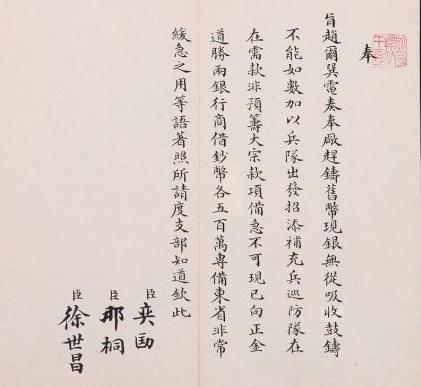 奉
旨趙爾巽電奏奉廠趕鑄舊幣現銀無從吸收鼓鑄
不能如數加以兵隊出發招添補充兵巡防隊在
在需款非預籌大宗款項備急不可現已向正金
道勝兩銀行商借鈔幣各五百萬專備東省非常
緩急之用等語著照所請度支部知道欽此
臣奕劻
臣那桐
臣徐世昌